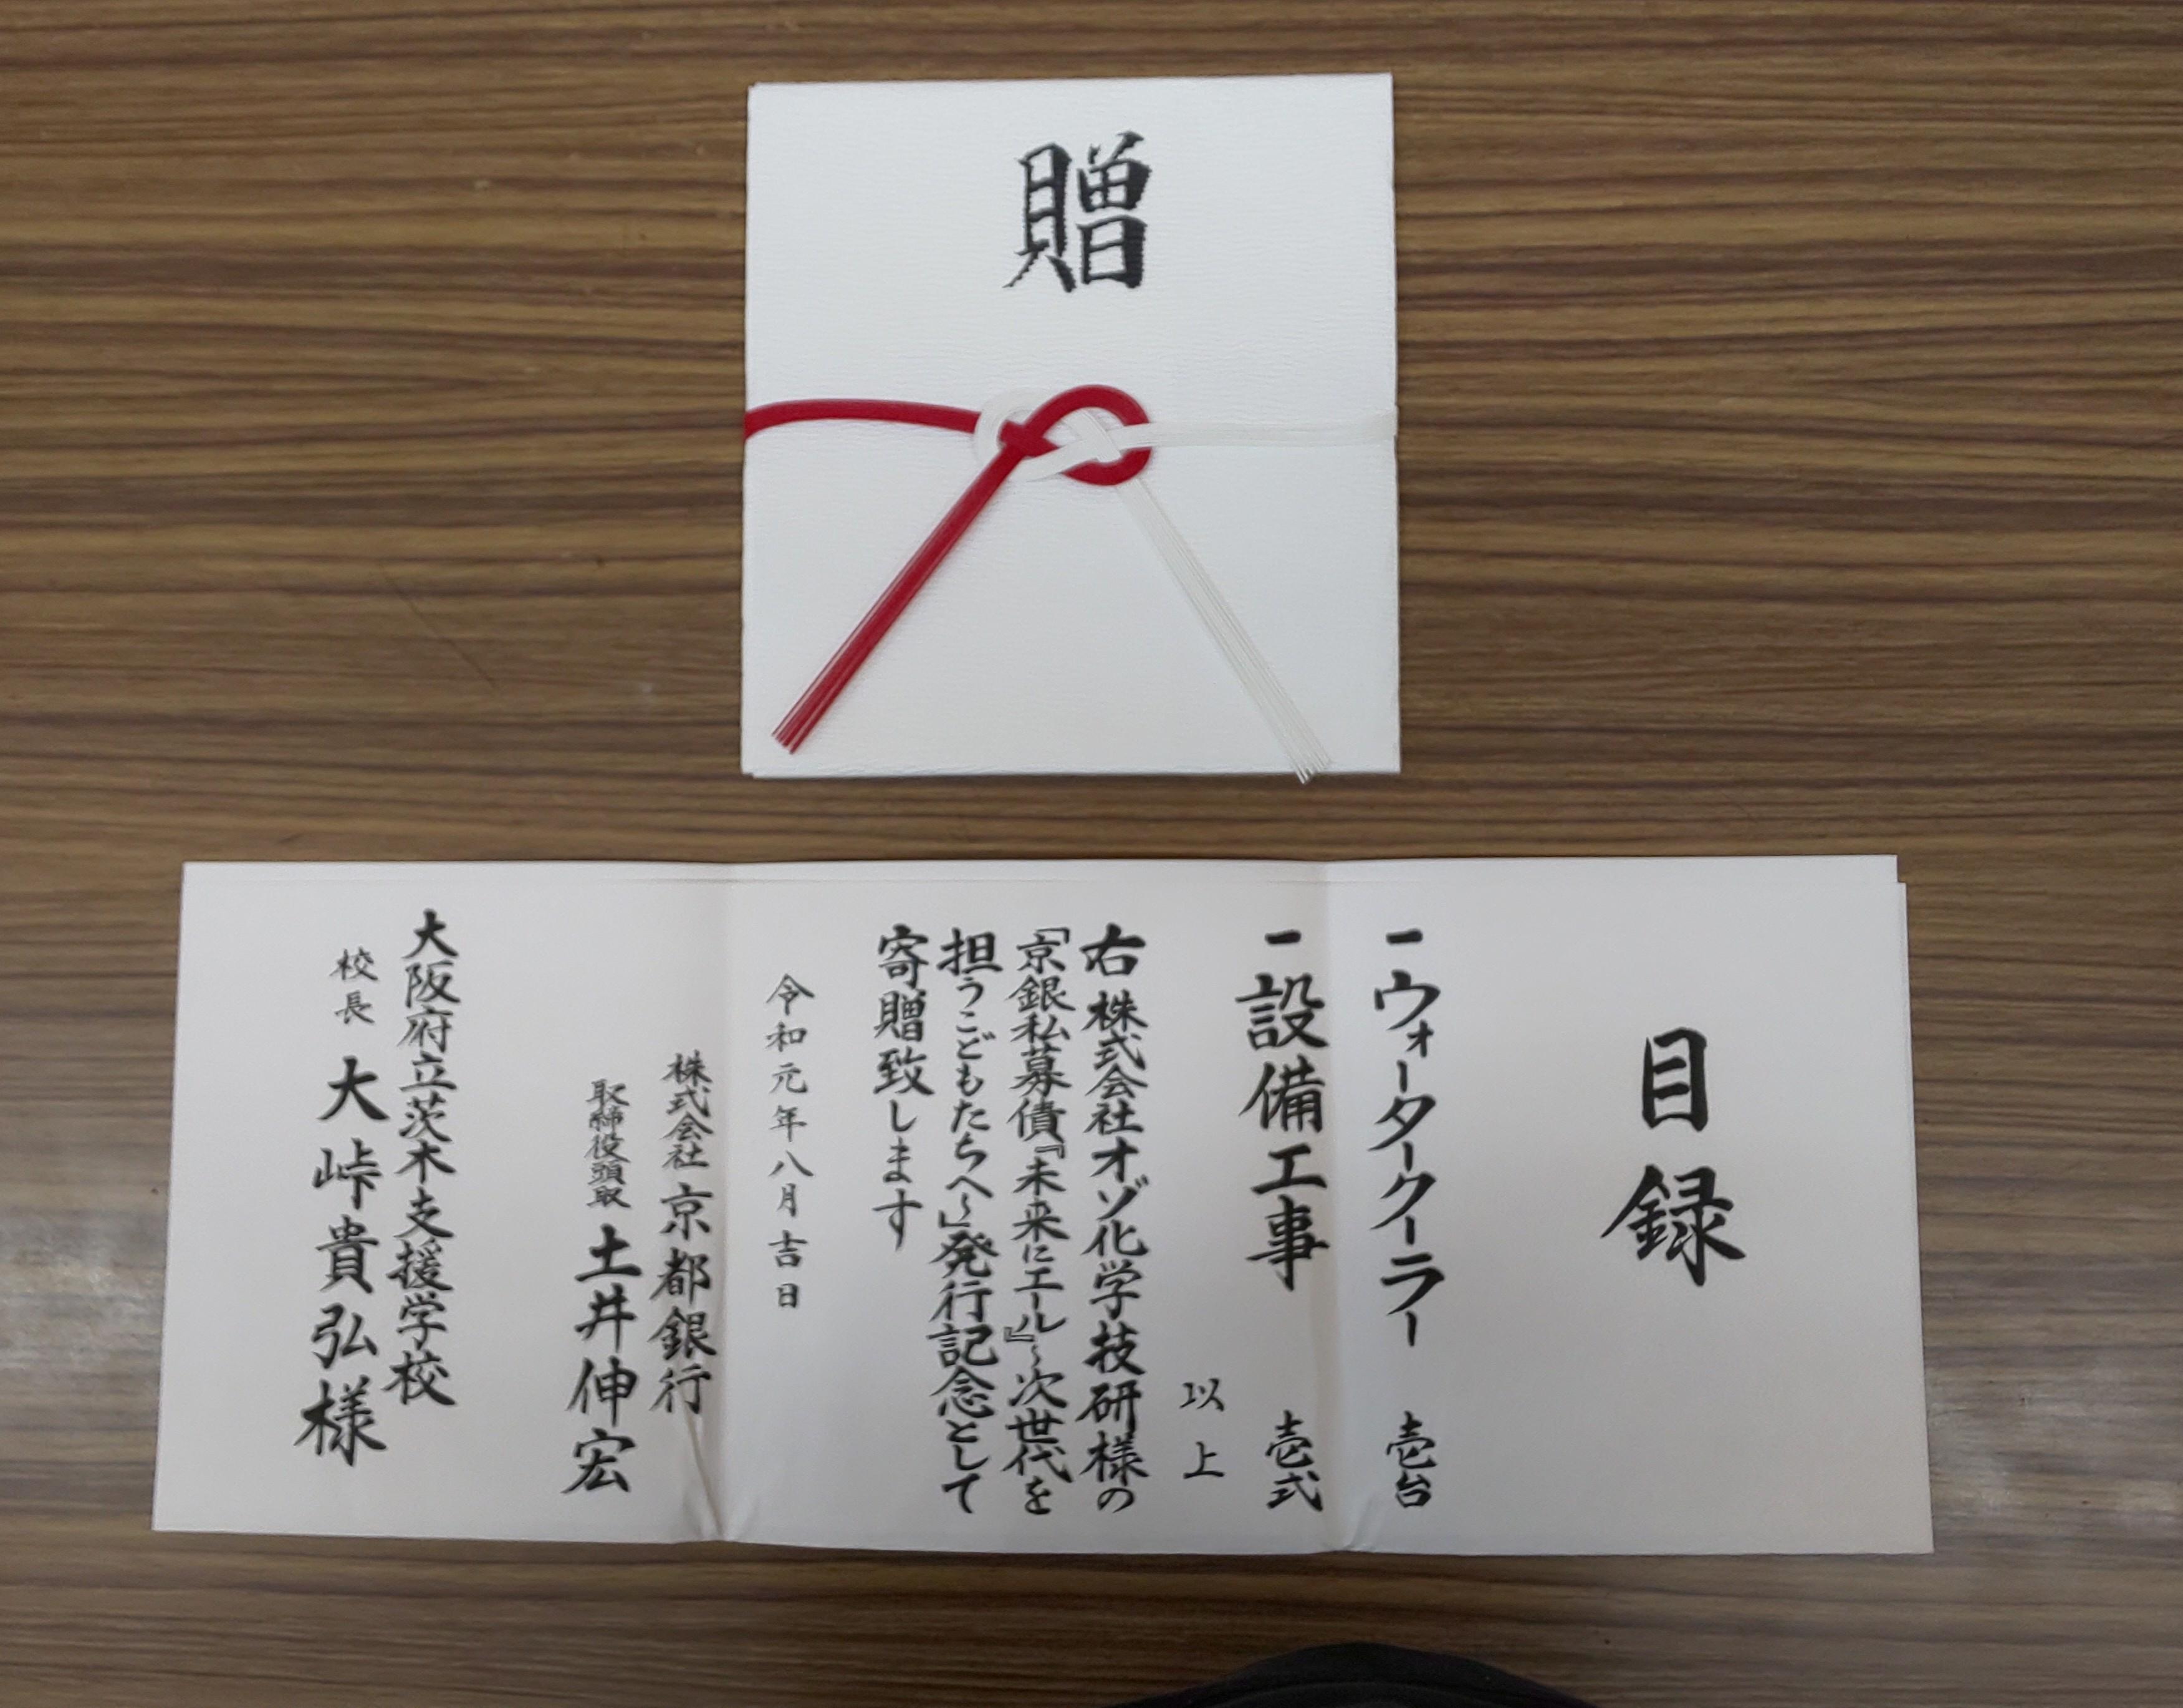 贈
目録
一 ウォータークーラー 壱台
一 設備工事 壱式
以上
右 株式会社オゾ化学技研様の
「京銀私募債『未来にエール』~次世代を
担うこどもたちへ~」発行記念として
寄贈致します
令和元年八月吉日
株式会社 京都銀行
取締役頭取 土井伸宏
大阪府立茨木支援学校
校長 大峠貴弘様